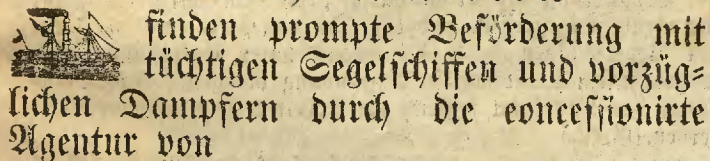 finden prompte Beförderung mit
tüchtigen Segelschiffen und vorzüg=
lichen Dampfern durch die concessionirte
Agentur von